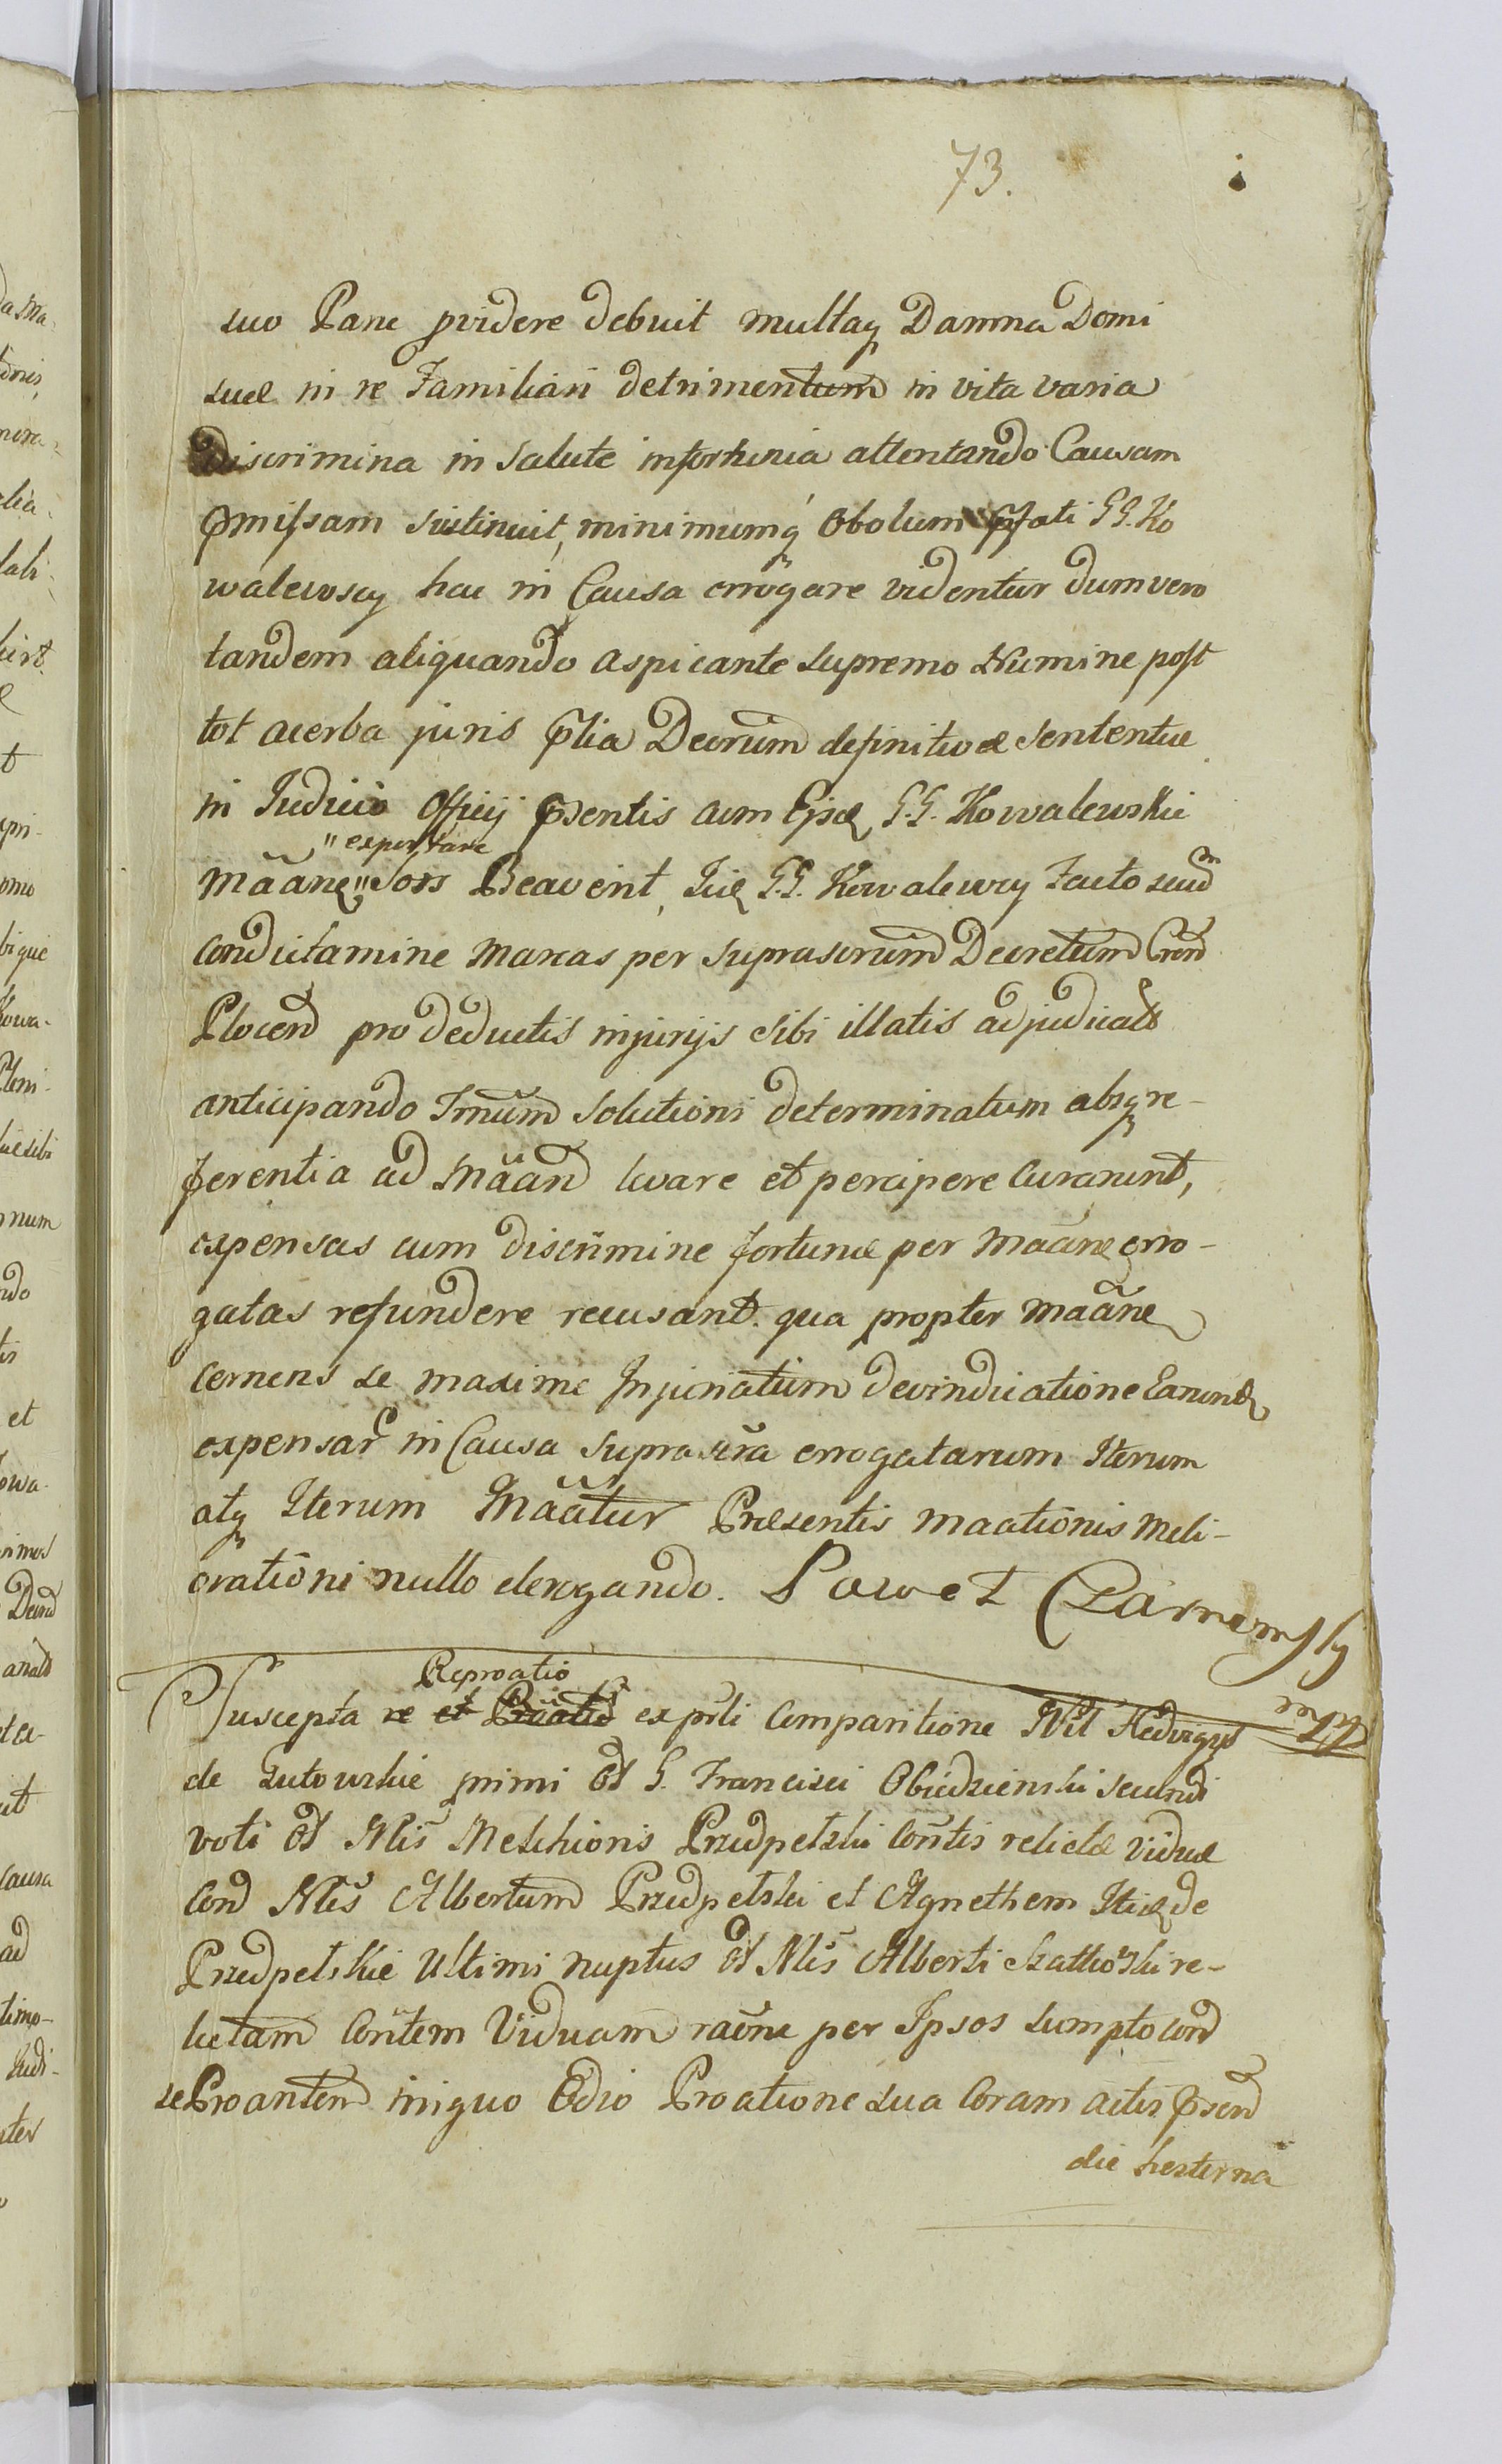 73.
suo Pane pvidere debuit multaq Damna Domi
suæ in re Familiari detrimentum in vita varia
Discrimina in salute infortunia attentando Causam
pmissam sustinuit, minimumq obolum pfati GG. Ko
walewscy hac in Causa errogare videntur dum vero
tandem aliquando aspicante supremo Numine post
tot acerba juris plia Decrum definitivæ sententiæ
in Judicio Officij psentis cum Ejsd GG. Kowalewskie
"expectare
mãane "sors Beaverit, Iid GG. Kowalewscy Facto secum
condictamine marcas per suprascrum Decretum Cren
Plocen pro deductis injurijs sibi illatis adjudicat
anticipando Tmum solutioni determinatum absq re-
ferentia ad Mãan levare et percipere curarunt,
expensas cum discrimine fortunæ per mãane erro-
gatas refundere recusant. qua propter mãane
cernens se maxime Injuriatum de vindicatione Earund
expensar in Causa suprascra errogatarum Iterum
atq Iterum Mãatur Præsentis maationis meli-
orationi nullo derogando. Paweł
Reproatio
Suscepta re et ex psti Comparitione Hedvigis
de Gutowskie primi Ol G. Francisci Obiedzienski secundi
voti Ol Nlis Melchionis Przedpelski Contis relictæ viduæ
Con Nles Albertum Przedpelski et Agnethem Itid de
Przedpelskie Ultimi nuptus Ol Nlis Alberti re-
lictam Contem Viduam raone per Ipsos sumpto con
se Proanten iniquo Odio Proatione sua Coram actis psen
die hesterna